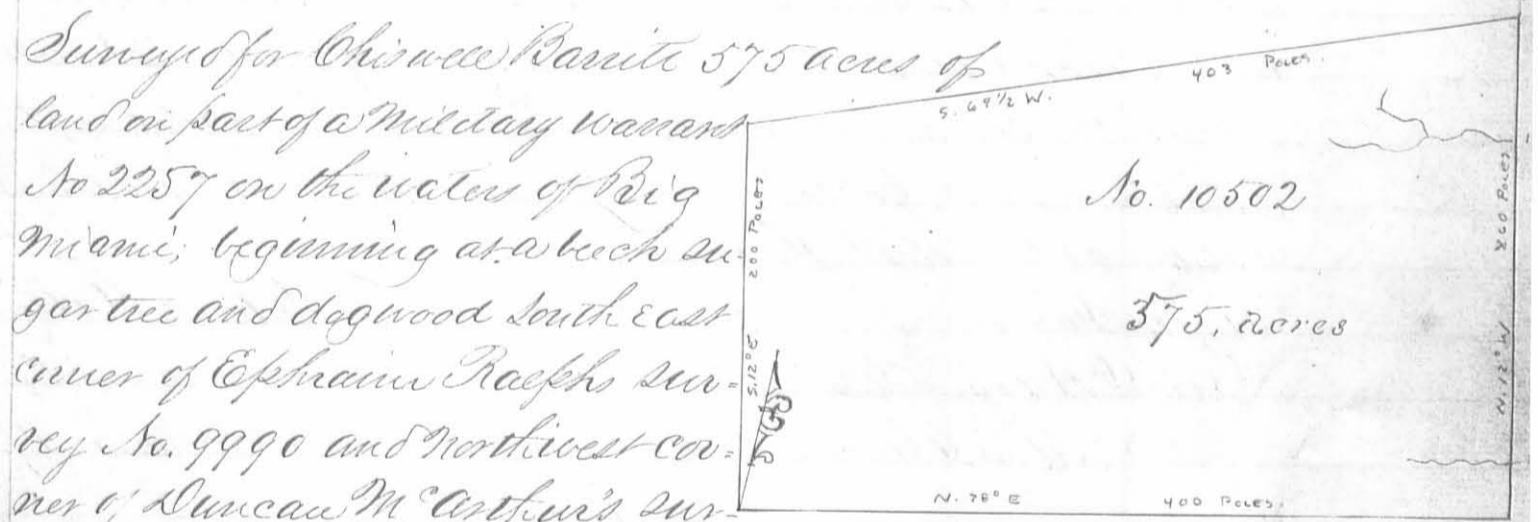 Surveyed for Chiswell Barrite 575 acres of
land on part of a Military warrant
No 2257 on the waters of Big
Miami; beginning at a beech su-
gar tree and dogwood South East
corner of Ephraim Ralphs sur=
vey No. 9990 and northwest cor=
ner of Duncan McArthur's sur-
S. 69 1/2 W. 403 Poles.
200 Poles
S. 12° E
No. 10502
575. acres
260 Poles
N. 12° W
N. 78° E 400 Poles.